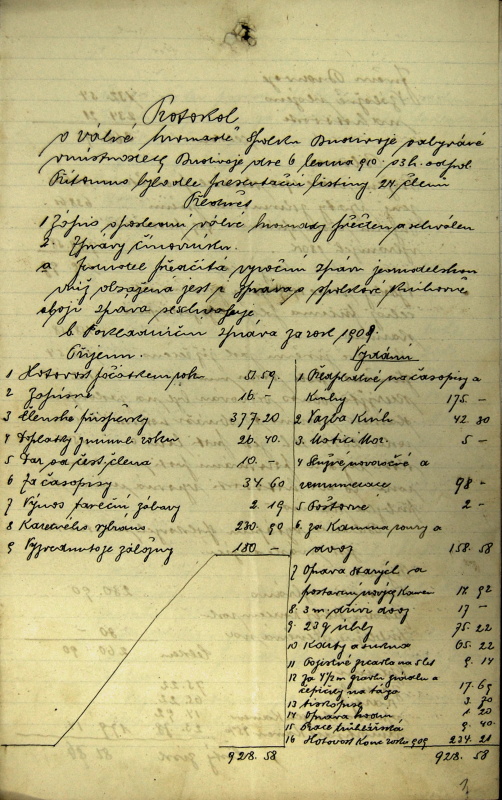 Protokol
o valné hromadě spolku Budivoje odbývané
v místnostech Budivoje dne 6 ledna 910. o 3 h. odpol.
Přítomno bylo dle presentační listiny 24 členů
Pořad
1 Zápis o poslední valné hromady přečten a schválen
2. Zprávy činovníků.
a Jednatel předčítá výroční zprávu jednatelskou
v níž obsažena jest i zpráva o spolkové knihovně
obojí zpráva se schvaluje
b Pokladniční zpráva za rok 1909.
Příjem.
1 Hotovost počátkem roku 51 59.
2 Zápisné 16. –
3 Členské příspěvky 377 20
4 Doplatky z minul. roku 26. 40.
5 Dar od čest. člena 10. –
6 Za časopisy 34. 60
7 Výnos taneční zábavy 2. 19
8 Karetního vybráno 230. 90
9 Vyzvednuto ze záložny 180 –
928. 58
Vydání
1 Předplatné na časopisy a
knihy 175. –
2 Vazba knih 42. 30
3. Matici Mor. 5 –
4 Služné novoročné a
remunerace 98 –
5 Poštovné 2 –
6. za kamna roury a
dvoj 158. 58
7 Oprava starých a
postavení nových kamen 17. 92
8. 3 m. dříví dvoj 17 –
9. 23 q uhlí 75. 22
10 Karty a sukna 65. 22
11 Pojistné 9. 14
12 za
čepičky na tága 17. 69
13 3. 70
14 Oprava hodin 1. 20
15 Práce truhlářská 9. 40.
16 Hotovost konc. roku 909 234. 21
928. 58